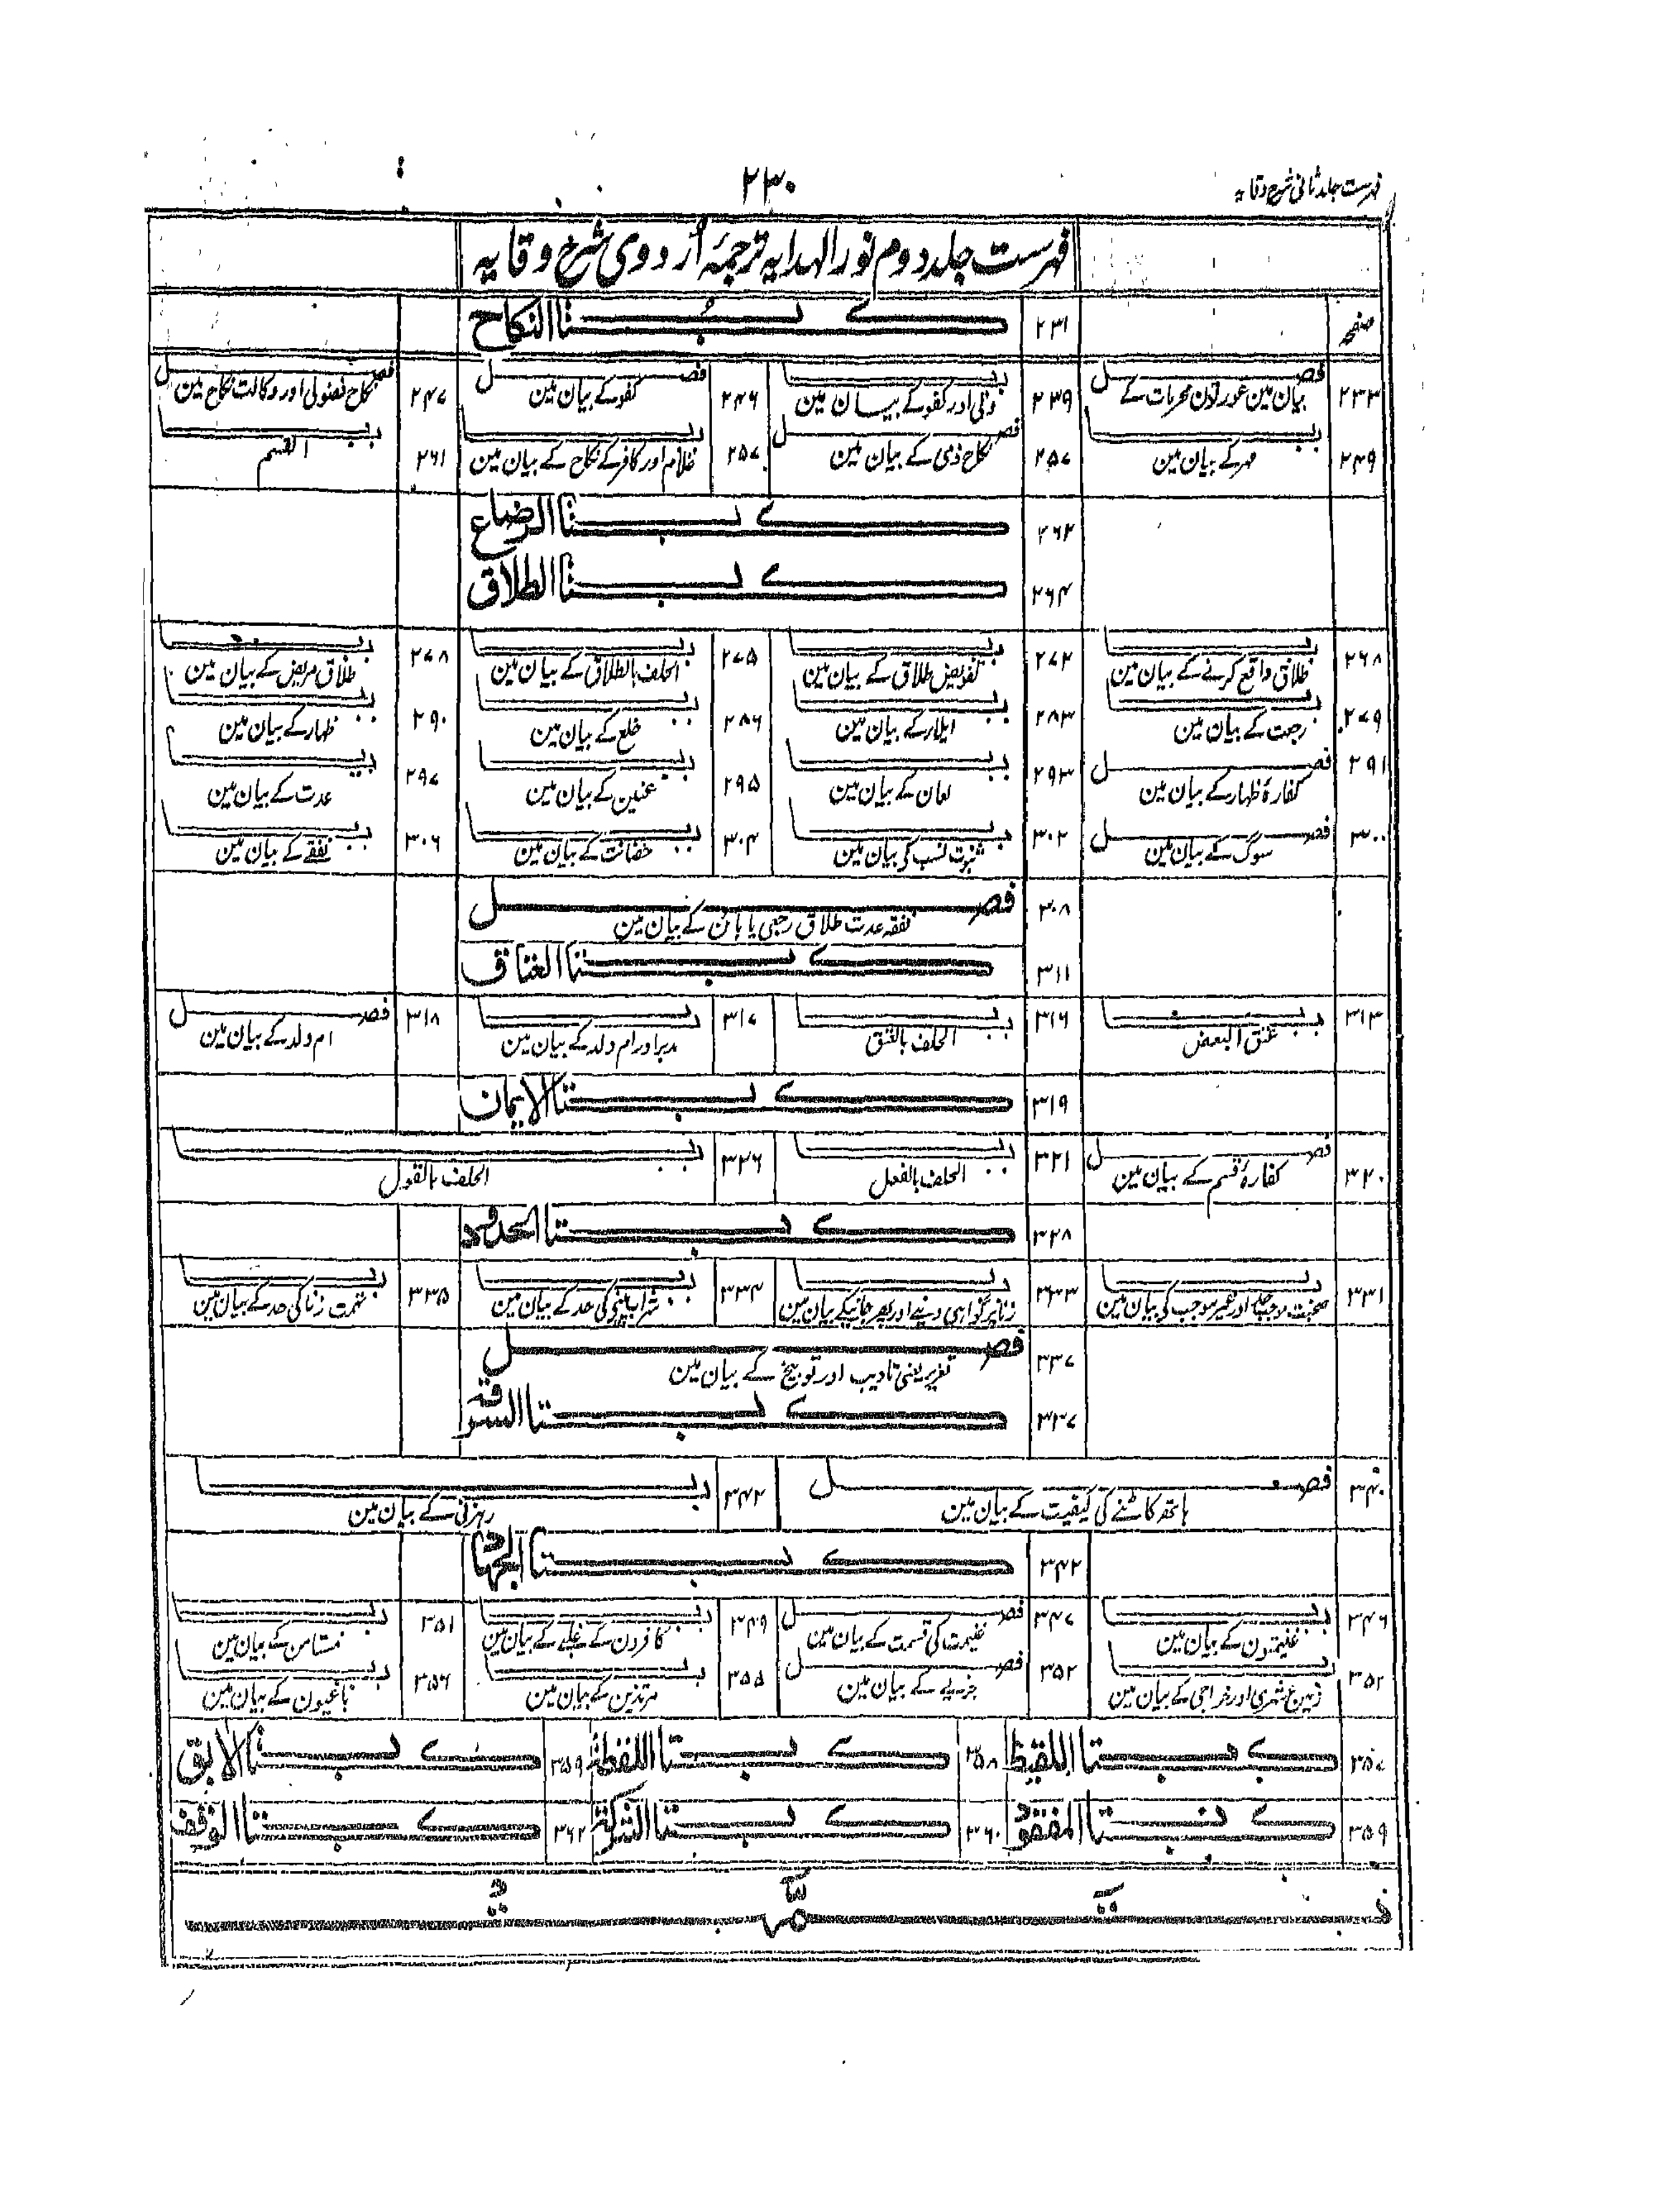 فہرست جلد ثانی شرح وقایہ
۲۳۰
فہرست جلد دوم نور الہدایہ ترجمۂ اُردوی شرح وقایہ
صفحہ ۲۳۱ کتاب النکاح
۲۳۳ فصل بیان مین عورتون محرمات کے ۲۳۹ باب ولی اور کفو کے بیان مین ۲۴۶ فصل کفو کے بیان مین ۲۴۷ فصل نکاح فضولی اور وکالت نکاح مین
۲۴۹ باب مہر کے بیان مین ۲۵۷ فصل نکاح ذمی کے بیان مین ۲۵۷ باب غلام اور کافر کے نکاح کے بیان مین ۲۶۱ باب القسم
۲۶۲ کتاب الرضاع
۲۶۴ کتاب الطلاق
۲۶۸ باب طلاق واقع کرنے کے بیان مین ۲۷۲ باب تفویض طلاق کے بیان مین ۲۷۵ باب الحلف بالطلاق کے بیان مین ۲۷۸ باب طلاق مریض کے بیان مین
۲۷۹ باب رجعت کے بیان مین ۲۸۳ باب ایلار کے بیان مین ۲۸۶ باب خلع کے بیان مین ۲۹۰ باب ظہار کے بیان مین
۲۹۱ فصل کفارۂ ظہار کے بیان مین ۲۹۳ باب لعان کے بیان مین ۲۹۵ باب عنین کے بیان مین ۲۹۷ باب عدت کے بیان مین
۳۰۰ فصل سوگ کے بیان مین ۳۰۲ باب ثبوت نسب کی بیان مین ۳۰۴ باب حضانت کے بیان مین ۳۰۶ باب نفقے کے بیان مین
۳۰۸ فصل نفقہ عدت طلاق رجعی یا بائن کے بیان مین
۳۱۱ کتاب العتاق
۳۱۳ باب عتق البعض ۳۱۶ باب الحلف بالعتق ۳۱۷ باب مدبر اور ام ولد کے بیان مین ۳۱۸ فصل ام ولد کے بیان مین
۳۱۹ کتاب الایمان
۳۲۰ فصل کفارۂ قسم کے بیان مین ۳۲۱ باب الحلف بالفعل ۳۲۶ باب الحلف بالقول
۳۲۸ کتاب الحدود
۳۳۱ باب صحبت موجب حد اور غیر موجب کی بیان مین ۳۳۳ باب زنا پر گواہی دینے اور پھر جانیکے بیان مین ۳۳۴ باب شراب پینی کی حد کے بیان مین ۳۳۵ باب تہمت زنا کی حد کے بیان مین
۳۳۷ فصل تعزیر یعنی تادیب اور توبیخ کے بیان مین
۳۳۷ کتاب السرقۃ
۳۴۰ فصل ہاتھ کاٹنے کی کیفیت کے بیان مین ۳۴۲ باب رہزنی کے بیان مین
۳۴۲ کتاب الجہاد
۳۴۶ باب غنیمتون کے بیان مین ۳۴۷ فصل غنیمت کی قسمت کے بیان مین ۳۴۹ باب کافرون کے غلبے کے بیان مین ۳۵۱ باب مستامن کے بیان مین
۳۵۲ باب زمین عشری اور خراجی کے بیان مین ۳۵۲ فصل جزیے کے بیان مین ۳۵۵ باب مرتدین کے بیان مین ۳۵۶ باب باغیون کے بیان مین
۳۵۷ کتاب اللقیط ۳۵۸ کتاب اللقطۃ ۳۵۹ کتاب الابق
۳۵۹ کتاب المفقود ۳۶۰ کتاب الشرکۃ ۳۶۲ کتاب الوقف